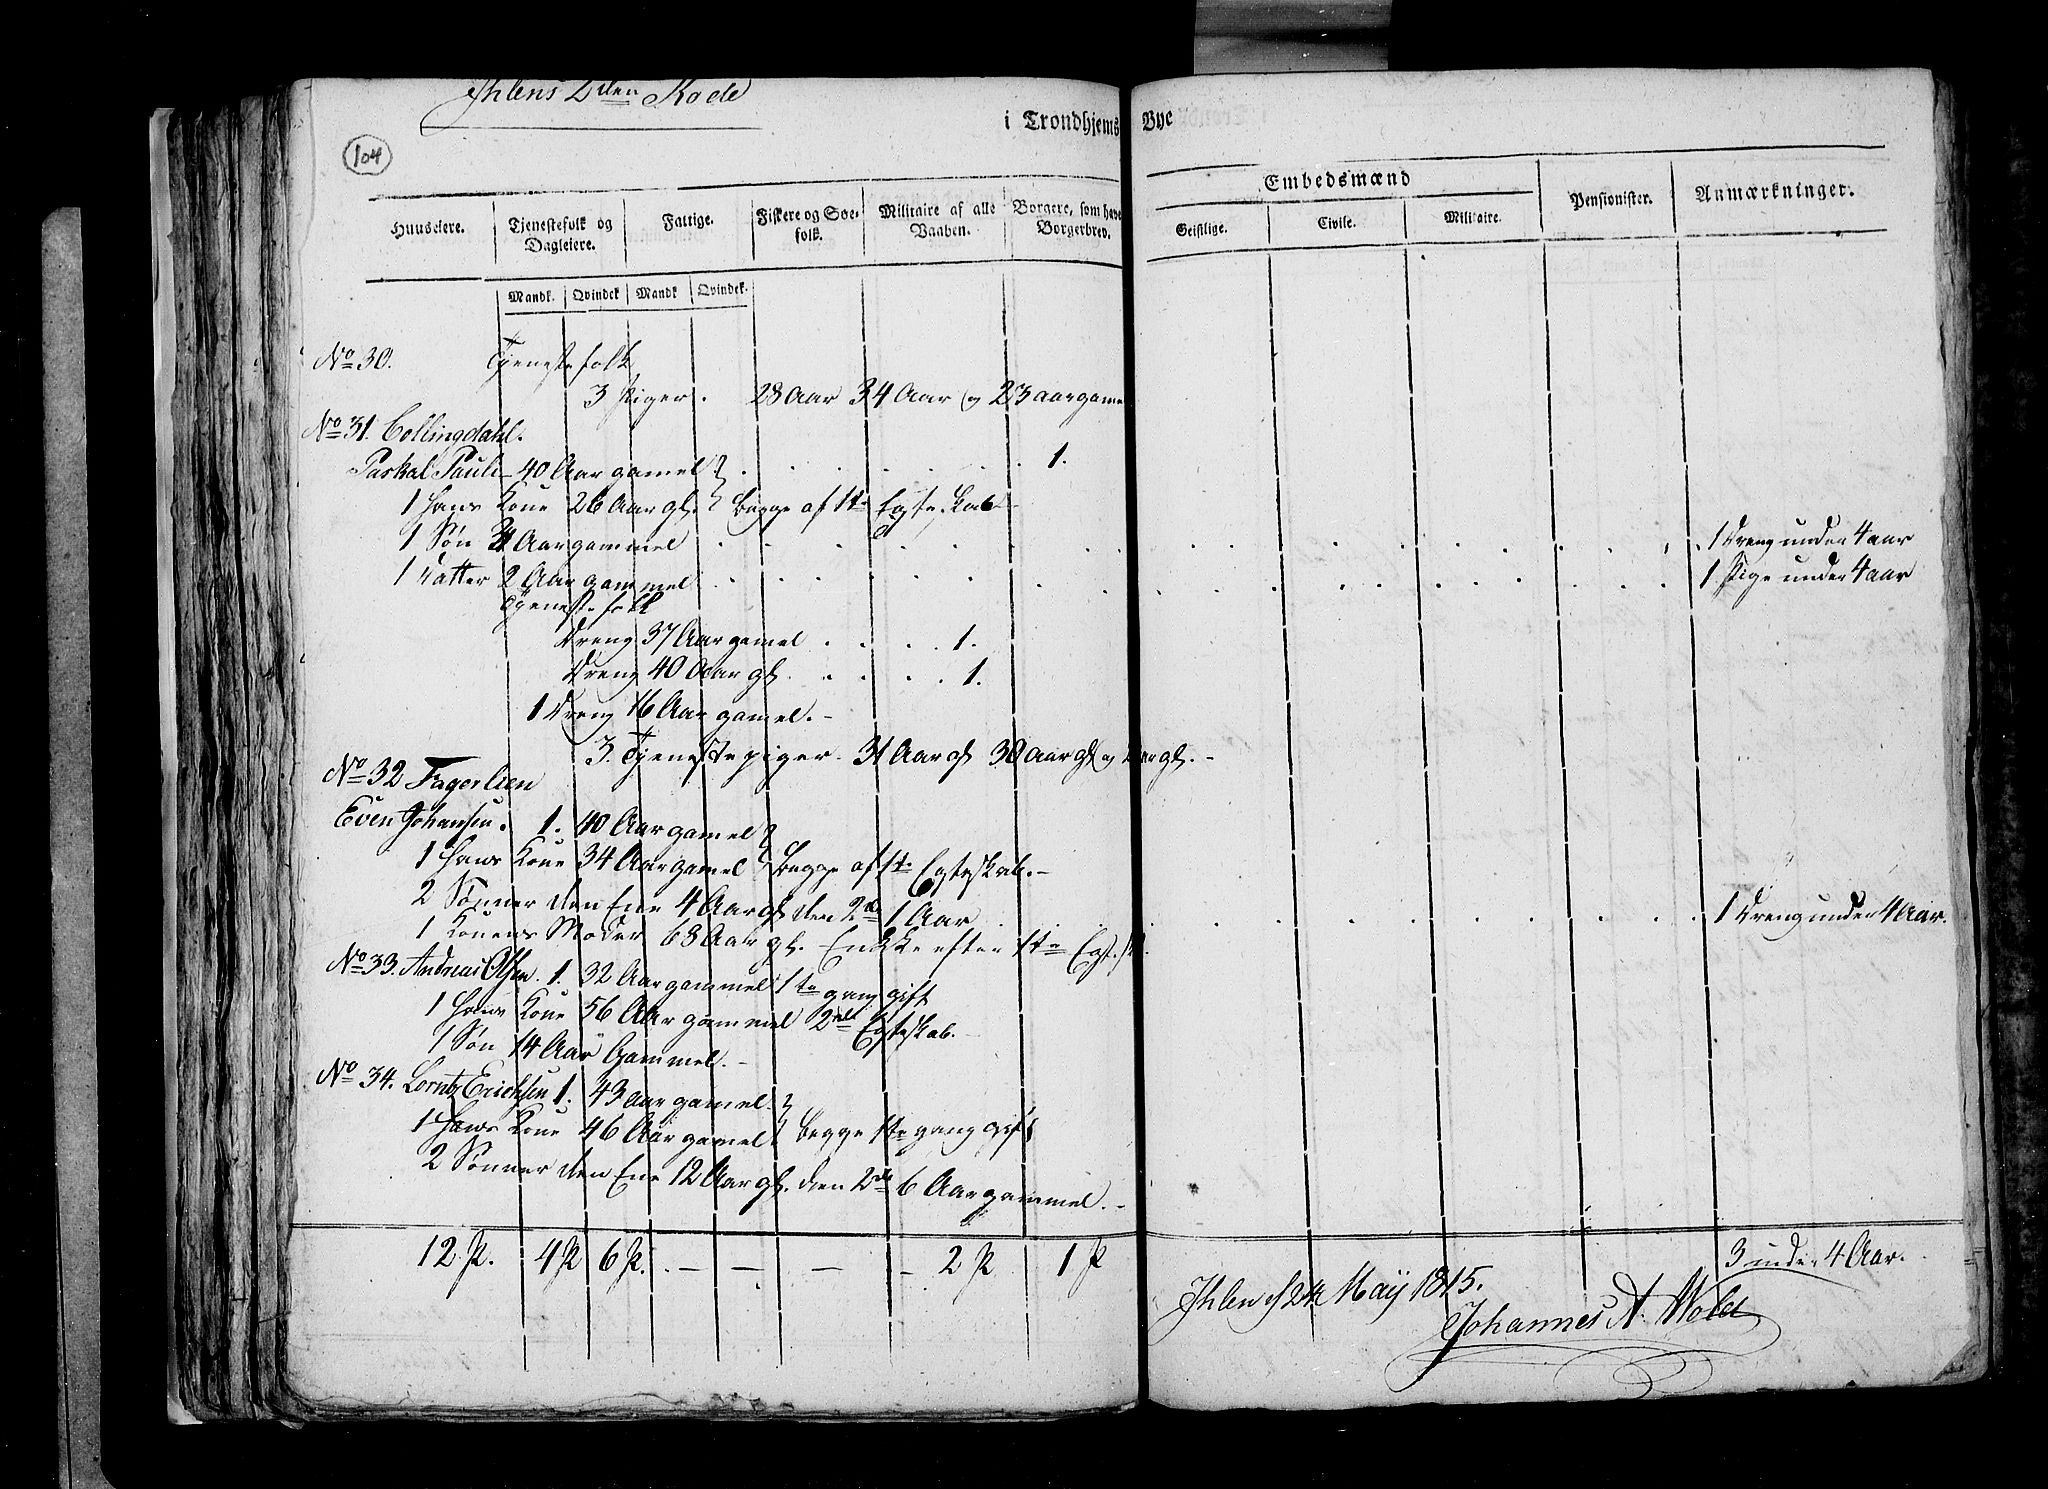 Ihlens 2den Rode
i Trondhjems Bye
104
Huuseiere.
Tjenestefolk og Dagleiere.
Fattige.
Fiskere og Søe-folk.
Militaire af alle Vaaben.
Borgere, som have Borgerbrev.
Embedsmænd
Geistlige.
Civile.
Militaire.
Pensionister.
Anmærkninger.
Mandk. Qvindek Mandk Qvindek.
No 30. Tjenestefolk
3 Piger. 28 Aar 34 Aar og 23 aar gamel
No 31. Collingdahl.
Paskal Pauli 40 Aar gamel . . . . . . 1.
1 Hans Kone 26 Aar gl. Begge af 1te Egteskab
1 Søn Aar gammel . . . . . 1 Dreng under 4 aar
1 Datter 2 Aar gammel . . . . . 1 Pige under 4 aar
Tjenestefolk
Dreng 37 Aar gamel . . . . 1.
Dreng 40 Aar gl. . . . . 1.
1 Dreng 16 Aar gamel.
3. Tjenestepiger. 31 Aar gl 30 Aar gl og Aar gl.
No 32 Fagerlien
Even Johansen. 1. 40 Aar gamel
1 Hans Kone 34 Aar gamel Begge af 1te Egteskab.
2 Sønner den Ene 4 Aar gl den 2de 1 Aar . . . . . 1 Dreng under 4 Aar.
1 Konens Moder 68 Aar gl. Enkke efter 1te Egtesk.
No 33. Andreas Olsen. 1. 32 Aar gammel 1te gang gift
1 Hans Kone 56 Aar gammel 2det Egteskab.
1 Søn 14 Aar Gammel.
No 34. Lorntz Erichsen 1. 43 aar gamel.
1 Hans Kone 46 Aar gamel begge 1te gang gift
2 Sønner den Ene 12 Aar gl. den 2de 6 Aar gammel.
12 P. 4 P 6 P. — — — — 2 P 1 P 3 under 4 Aar.
Ihlen d May 1815.
Johannes A. Wold